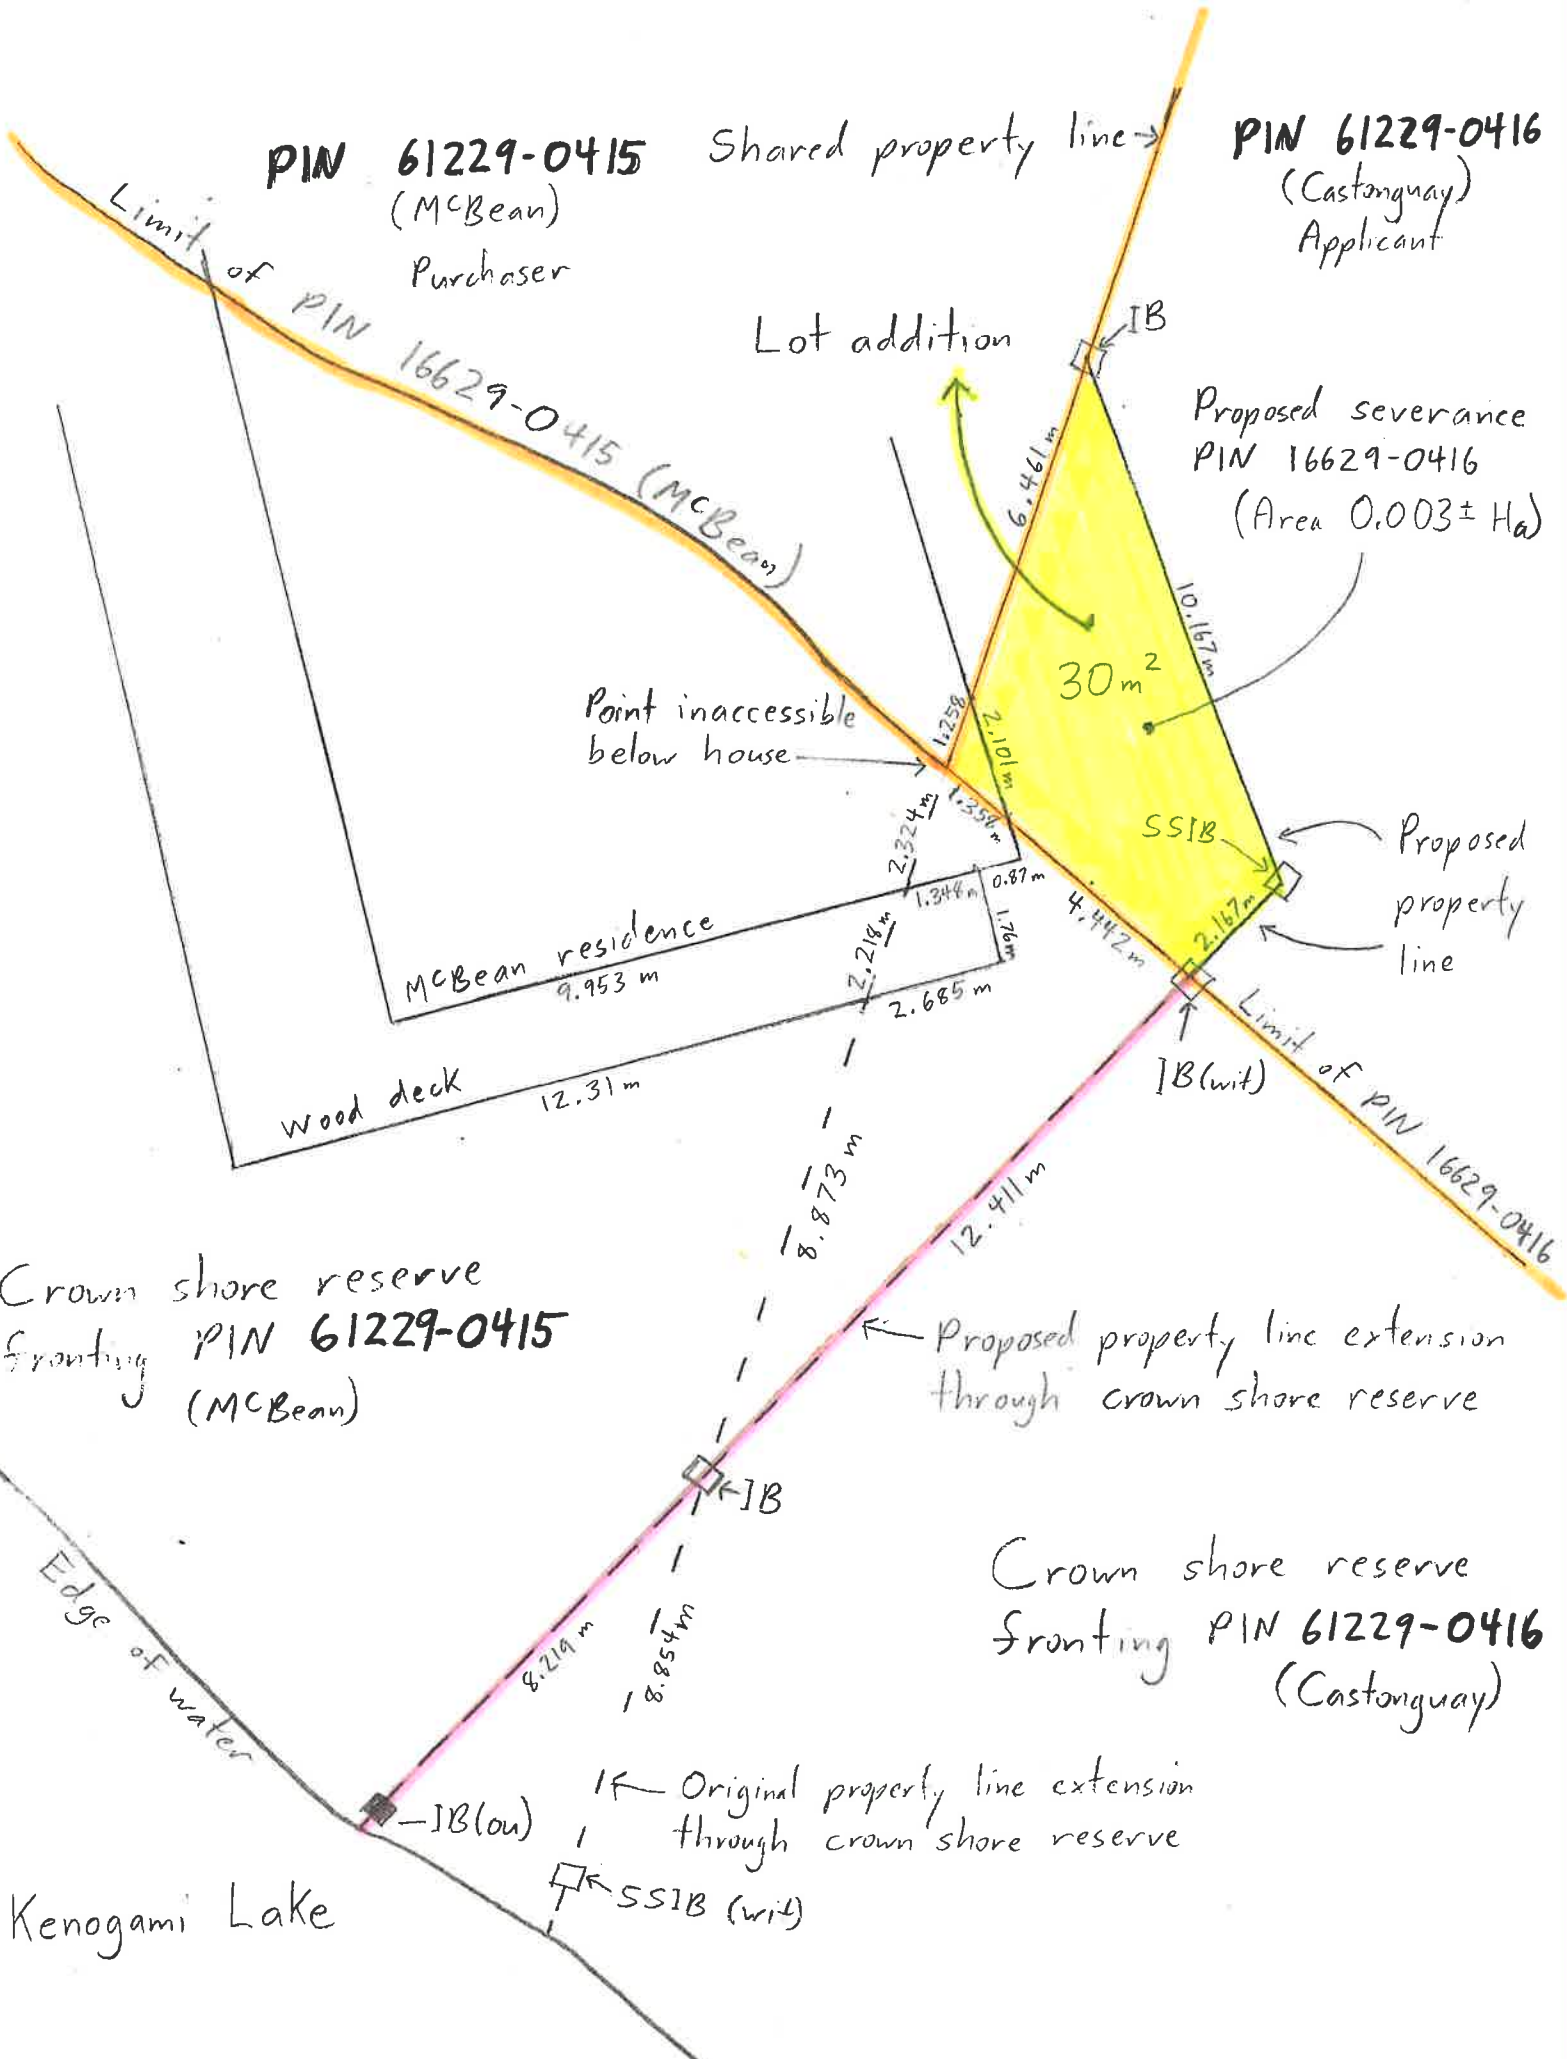 PIN 61229-0415
(McBean)
Purchaser
Shared property line
PIN 61229-0416
(Castonguay)
Applicant
Limit of PIN 16629-0415 (McBean)
Lot addition
IB
Proposed severance
PIN 16629-0416
(Area 0.003± Ha)
6.461 m
10.167 m
30 m²
Point inaccessible
below house
1.258
2.101 m
1.358 m
2.324 m
SSIB
Proposed
property
line
0.87 m
1.348 m
1.76 m
4.442 m
2.167 m
McBean residence
9.953 m
2.218 m
2.685 m
Wood deck
12.31 m
IB (wit)
Limit of PIN 16629-0416
8.873 m
12.411 m
Crown shore reserve
fronting PIN 61229-0415
(McBean)
Proposed property line extension
through crown shore reserve
IB
Edge of water
8.219 m
8.854 m
Crown shore reserve
fronting PIN 61229-0416
(Castonguay)
Original property line extension
through crown shore reserve
IB (ou)
SSIB (wit)
Kenogami Lake